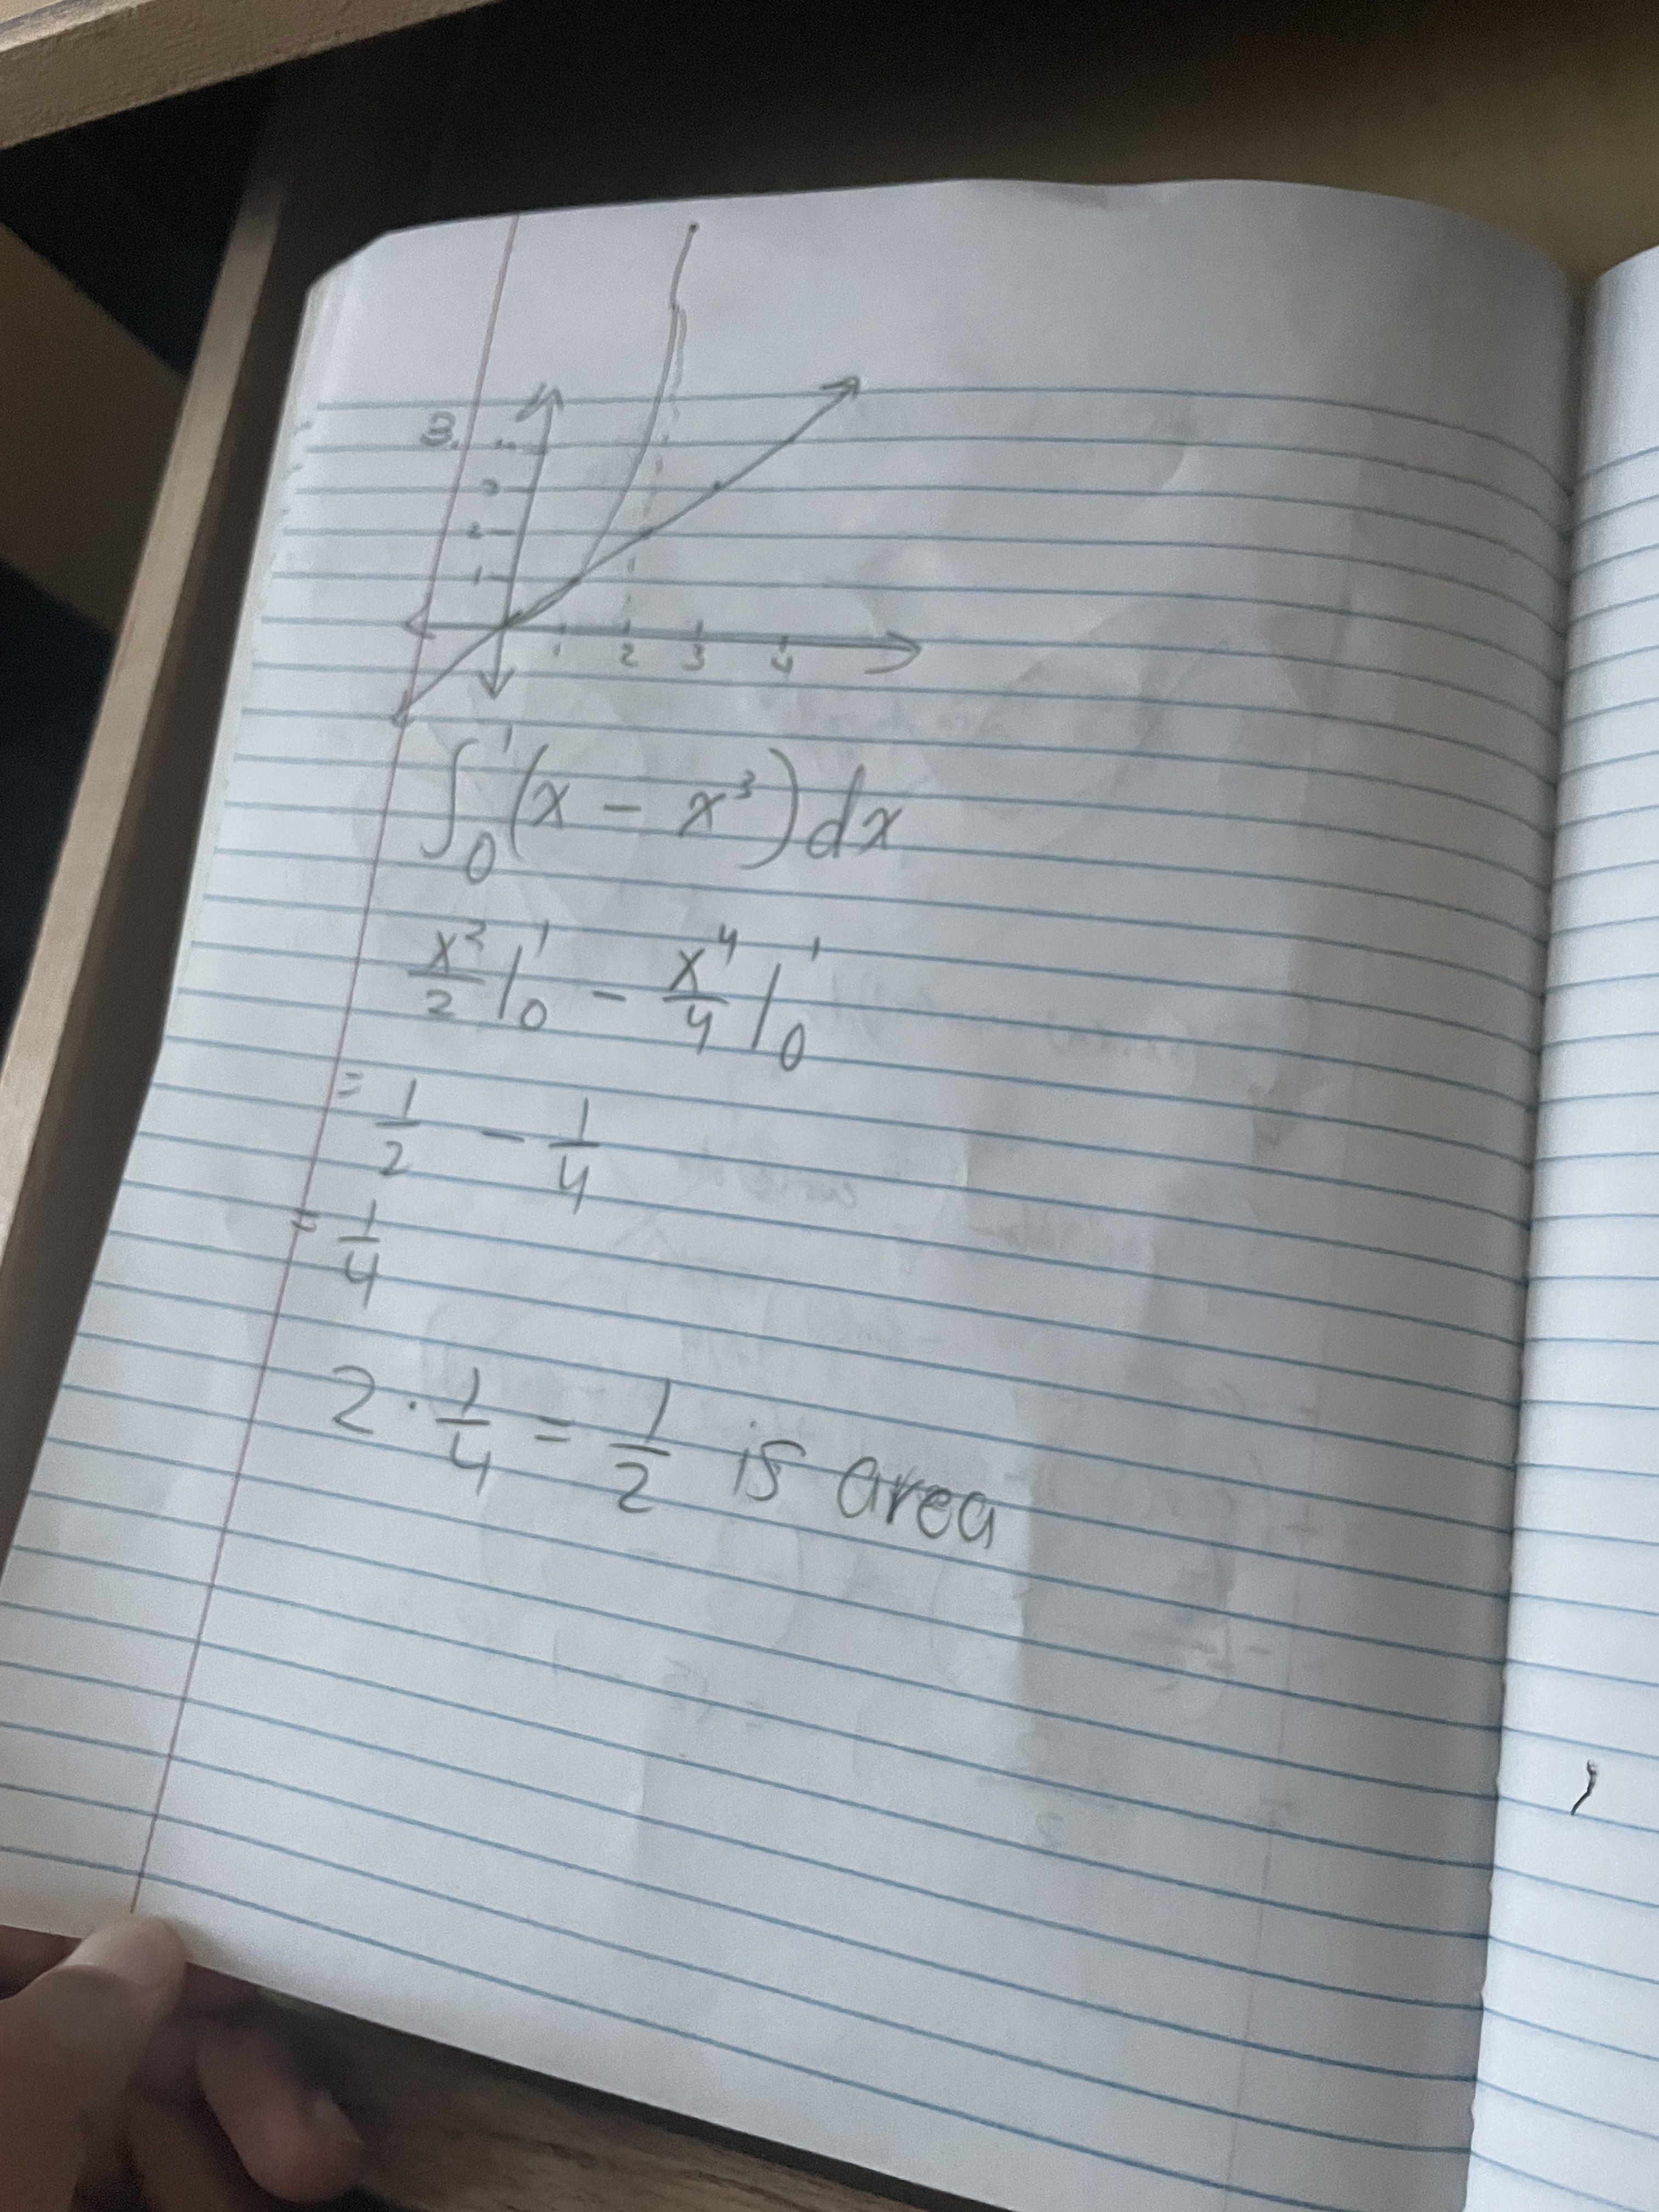 3.
3
2
1
1 2 3 4
∫₀¹ (x - x³) dx
x²/2 |₀¹ - x⁴/4 |₀¹
= 1/2 - 1/4
= 1/4
2 · 1/4 = 1/2 is area